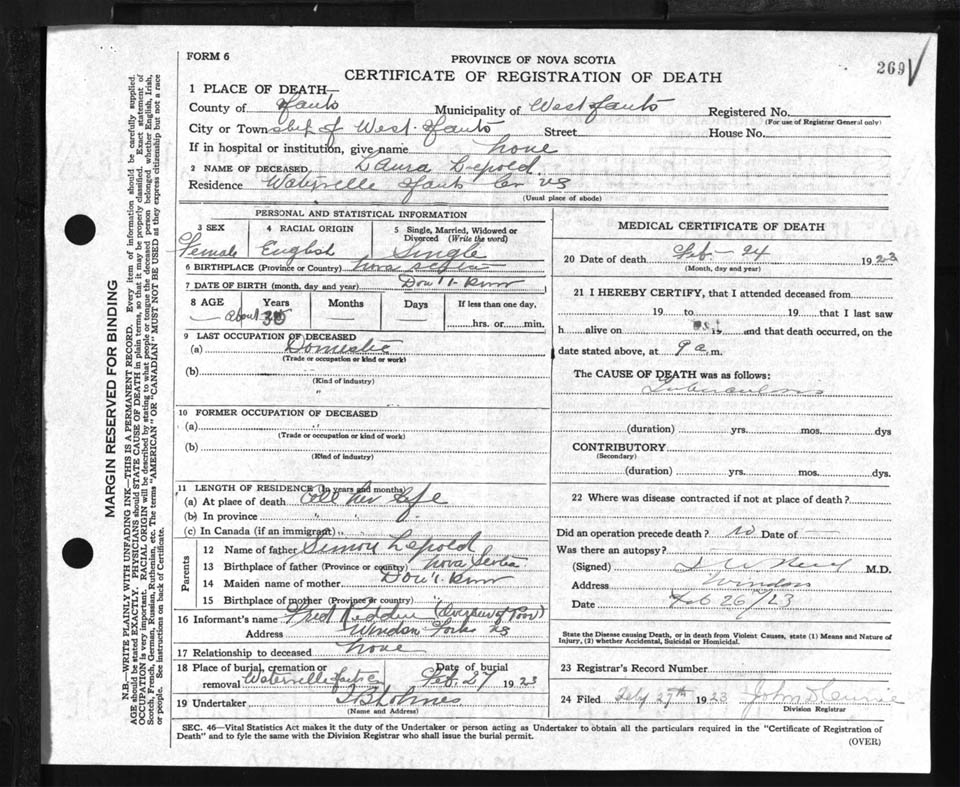 FORM 6
PROVINCE OF NOVA SCOTIA
269
CERTIFICATE OF REGISTRATION OF DEATH
1 PLACE OF DEATH—
County of Hants Municipality of West Hants Registered No.
(For use of Registrar General only)
City or Town of West Hants Street House No.
If in hospital or institution, give name None
2 NAME OF DECEASED Laura Lepold
Residence Waterville Hants Co NS
(Usual place of abode)
PERSONAL AND STATISTICAL INFORMATION
3 SEX Female
4 RACIAL ORIGIN English
5 Single, Married, Widowed or Divorced (Write the word) Single
6 BIRTHPLACE (Province or Country) Nova Scotia
7 DATE OF BIRTH (month, day and year) Don't Know
8 AGE Years Months Days If less than one day,
— About 35 — — hrs. or min.
9 LAST OCCUPATION OF DECEASED
(a) Domestic
(Trade or occupation or kind or work)
(b)
(Kind of industry)
"
10 FORMER OCCUPATION OF DECEASED
(a)
(Trade or occupation or kind of work)
(b)
(Kind of industry)
11 LENGTH OF RESIDENCE (In years and months)
(a) At place of death all her Life
(b) In province " "
(c) In Canada (if an immigrant)
Parents
12 Name of father Simon Lepold
13 Birthplace of father (Province or country) Nova Scotia
14 Maiden name of mother Don't Know
15 Birthplace of mother (Province or country)
16 Informant's name Fred (Overseer of Poor)
Address Windsor Forks NS
17 Relationship to deceased None
18 Place of burial, cremation or removal Waterville Hants Co Date of burial Feb. 27 1923
19 Undertaker Holmes
(Name and Address)
MEDICAL CERTIFICATE OF DEATH
20 Date of death Feb - 24 1923
(Month, day and year)
21 I HEREBY CERTIFY, that I attended deceased from
19 to 19 that I last saw
h alive on 19 and that death occurred, on the
date stated above, at 9 a.m.
The CAUSE OF DEATH was as follows:
Tuberculosis
(duration) yrs. mos. dys
CONTRIBUTORY
(Secondary)
(duration) yrs. mos. dys.
22 Where was disease contracted if not at place of death?
Did an operation precede death? No Date of
Was there an autopsy?
(Signed) M.D.
Address Windsor
Date Feb 26/23
State the Disease causing Death, or in death from Violent Causes, state (1) Means and Nature of
Injury, (2) whether Accidental, Suicidal or Homicidal.
23 Registrar's Record Number
24 Filed Feby 27th 1923 John
Division Registrar
SEC. 46—Vital Statistics Act makes it the duty of the Undertaker or person acting as Undertaker to obtain all the particulars required in the "Certificate of Registration of
Death" and to fyle the same with the Division Registrar who shall issue the burial permit.
(OVER)
MARGIN RESERVED FOR BINDING
N.B.—WRITE PLAINLY WITH UNFADING INK—THIS IS A PERMANENT RECORD. Every item of information should be carefully supplied.
AGE should be stated EXACTLY. PHYSICIANS should STATE CAUSE OF DEATH in plain terms, so that it may be properly classified. Exact statement of
OCCUPATION is very important. RACIAL ORIGIN will be described by stating to what people or tongue the deceased person belonged whether English, Irish,
Scotch, French, German, Russian, Ruthenian, etc. The terms "AMERICAN" OR "CANADIAN" MUST NOT BE USED as they express citizenship but not a race
or people. See instructions on back of Certificate.